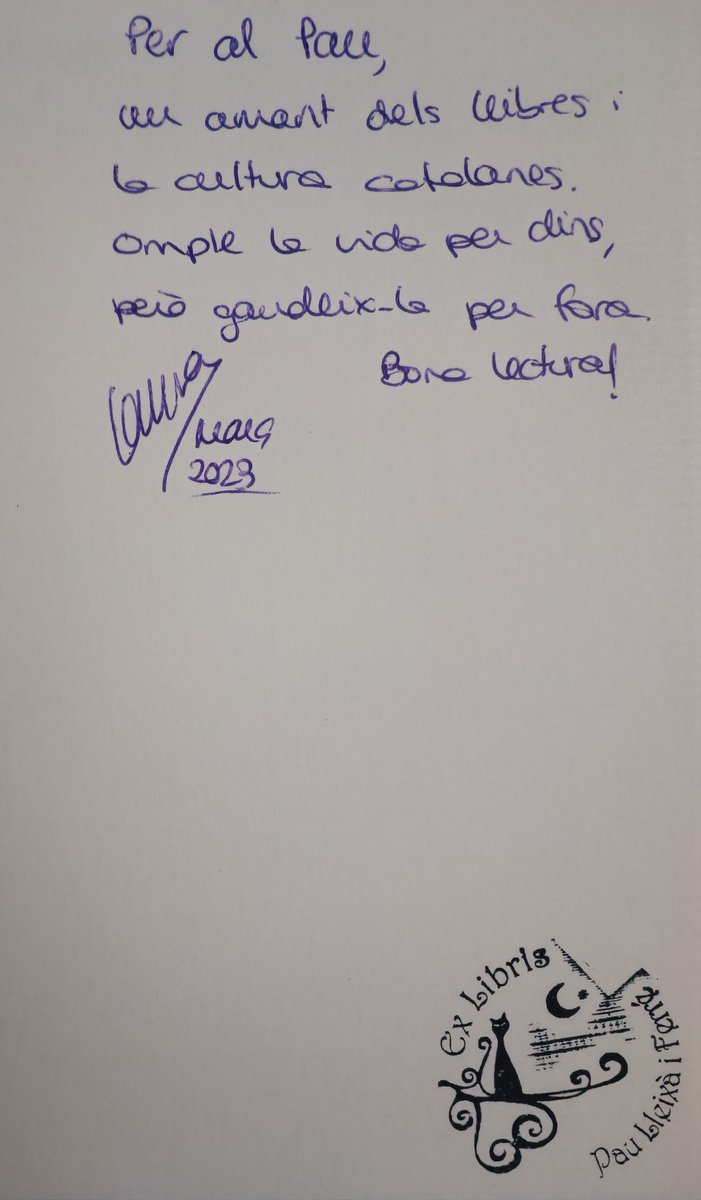 Per al Pau,
un amant dels llibres i
la cultura catalanes.
Omple la vida per dins,
però gaudeix-la per fora.
Bona lectura!
Laura
/març
2023
Ex Libris
Pau Lleixà i Ferré